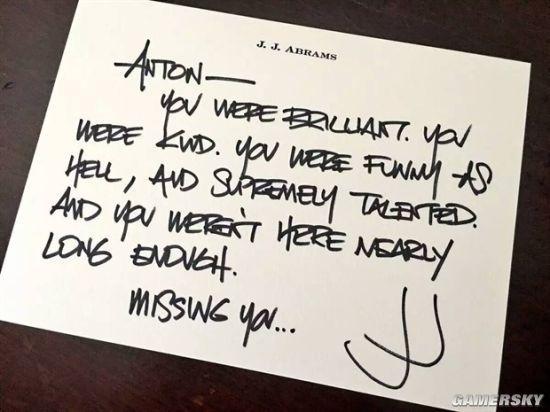 J. J. ABRAMS
ANTON—
YOU WERE BRILLIANT. YOU
WERE KIND. YOU WERE FUNNY AS
HELL, AND SUPREMELY TALENTED.
AND YOU WEREN'T HERE NEARLY
LONG ENOUGH.
MISSING YOU...
JJ
GAMERSKY